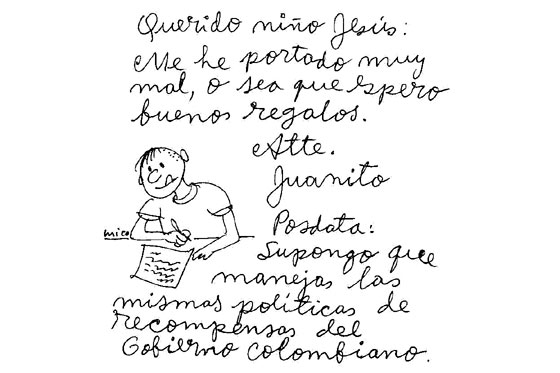 Querido niño Jesús:
Me he portado muy
mal, o sea que espero
buenos regalos.
Atte.
Juanito
mico
Posdata:
Supongo que
manejas las
mismas políticas de
recompensas del
Gobierno Colombiano.